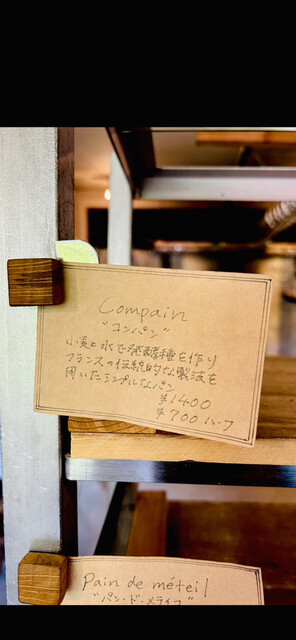 Compain
"コンパン"
小麦と水で発酵種を作り
フランスの伝統的な製法を
用いたシンプルなパン
¥1400
¥700 ハーフ
Pain de méteil
"パン・ド・メテイユ"